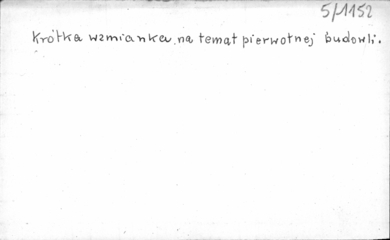 5/1152
Krótka wzmianka na temat pierwotnej budowli.